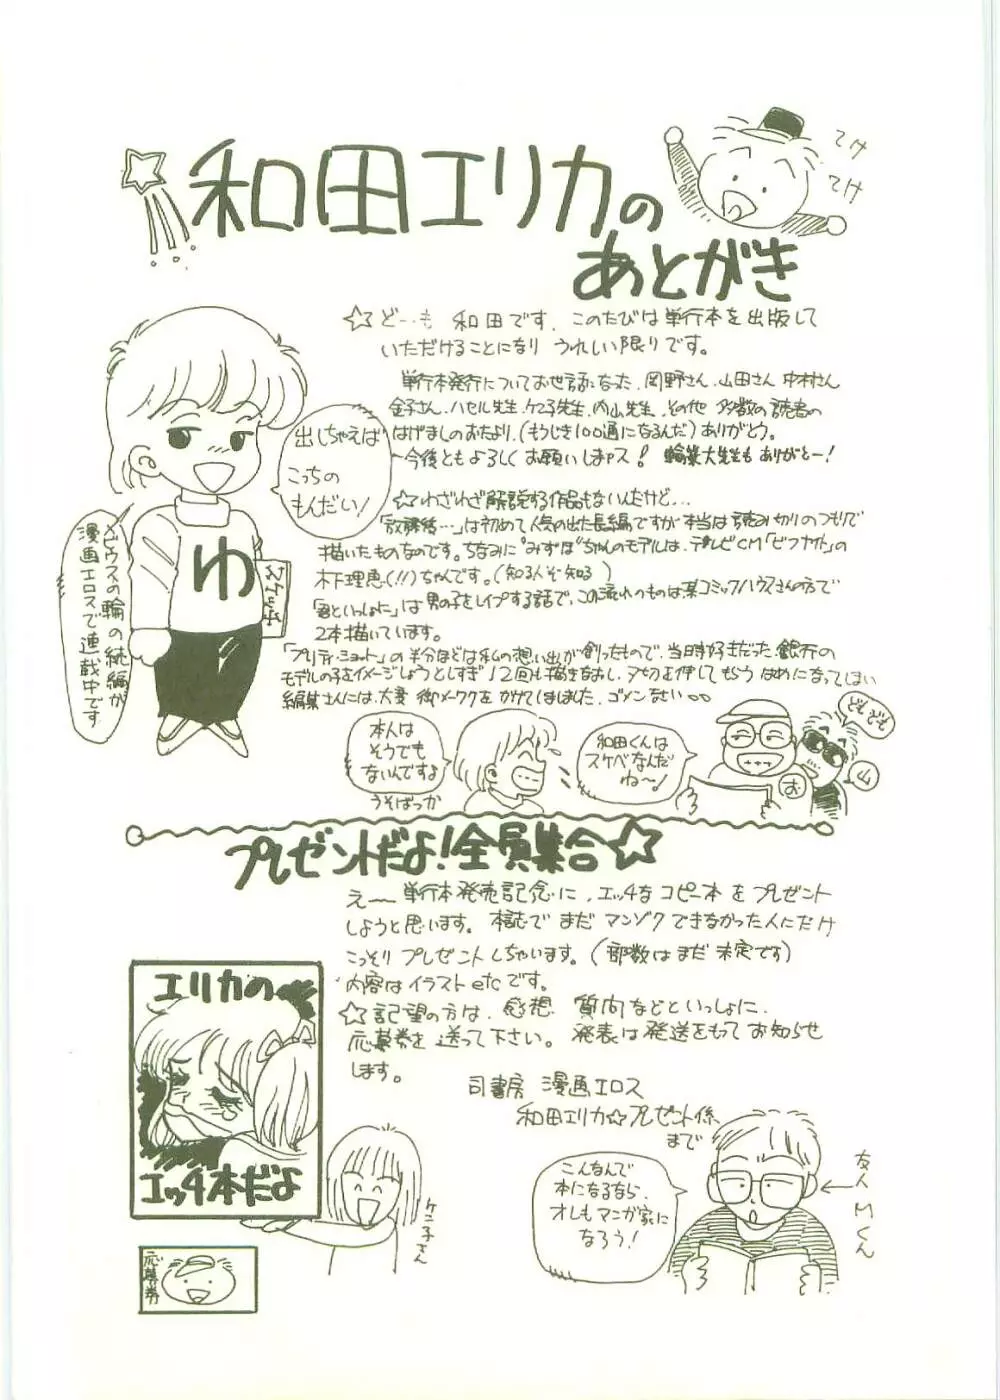 和田エリカの
あとがき
てけ
てけ
☆どーも 和田です. このたびは単行本を出版して
いただけることになり うれしい限りです。
単行本発行についてお世話になった. 岡野さん. 山田さん 中村さん
金子さん. ハセル先生. ケニ子先生. 内山先生. その他 多数の読者の
はげましのおたより. (もうじき100通になるんだ) ありがとう。
〜今後ともよろしくお願いしまァス! 輪業大先生も ありがとー!
出しちゃえば
こっちの
もんだい!
☆わざわざ解説する作品もないんたけど…
「放課後…」は初めて人気の出た長編ですが本当は読み切りのつもりで
描いたものなのです。ちなみに"みずほ"ちゃんのモデルは、テレビCM「ビフナイト」の
木下理恵(!!)ちゃんです。(知る人ぞ知る)
「君といっしょに」は男の子をレイプする話で、この流れのものは某コミックハウスさんの方で
2本描いています。
「プリティ・ショット」の半分ほどは私の想い出が創ったもので、当日時好きだった銀行の
モデルの子をイメージしようとしすぎ12回も描きなおし、アセりを
編集さんには、大変 御メーワクをかけてしましました。ゴメンなさい。。
ゆ
スケッチ
メビウスの輪の続編が
漫画エロスで連載中です
本人は
そうでも
ないんですよ
うそばっか
和田くんは
スケベなんだ
ね〜!
どもども
お
山
プレゼントだよ!全員集合☆
え〜 単行本発売記念に、エッチな コピー本 を プレゼント
しようと思います。本誌で まだ マンゾク できなかった人にだけ
こっそり プレゼント しちゃいます。(部数はまだ 未定です)
内容はイラスト etc です。
☆記望の方は、感想 質問などといっしょに、
応募券を 送って下さい。 発表は発送をもって お知らせ
します。
司書房 漫画エロス
和田エリカ☆プレゼント係
まで
エリカの
エッチ本だよ
ケニ子さん
こんなんで
本になるなら、
オレもマンガ家に
なろう!
友人Mくん
応募券